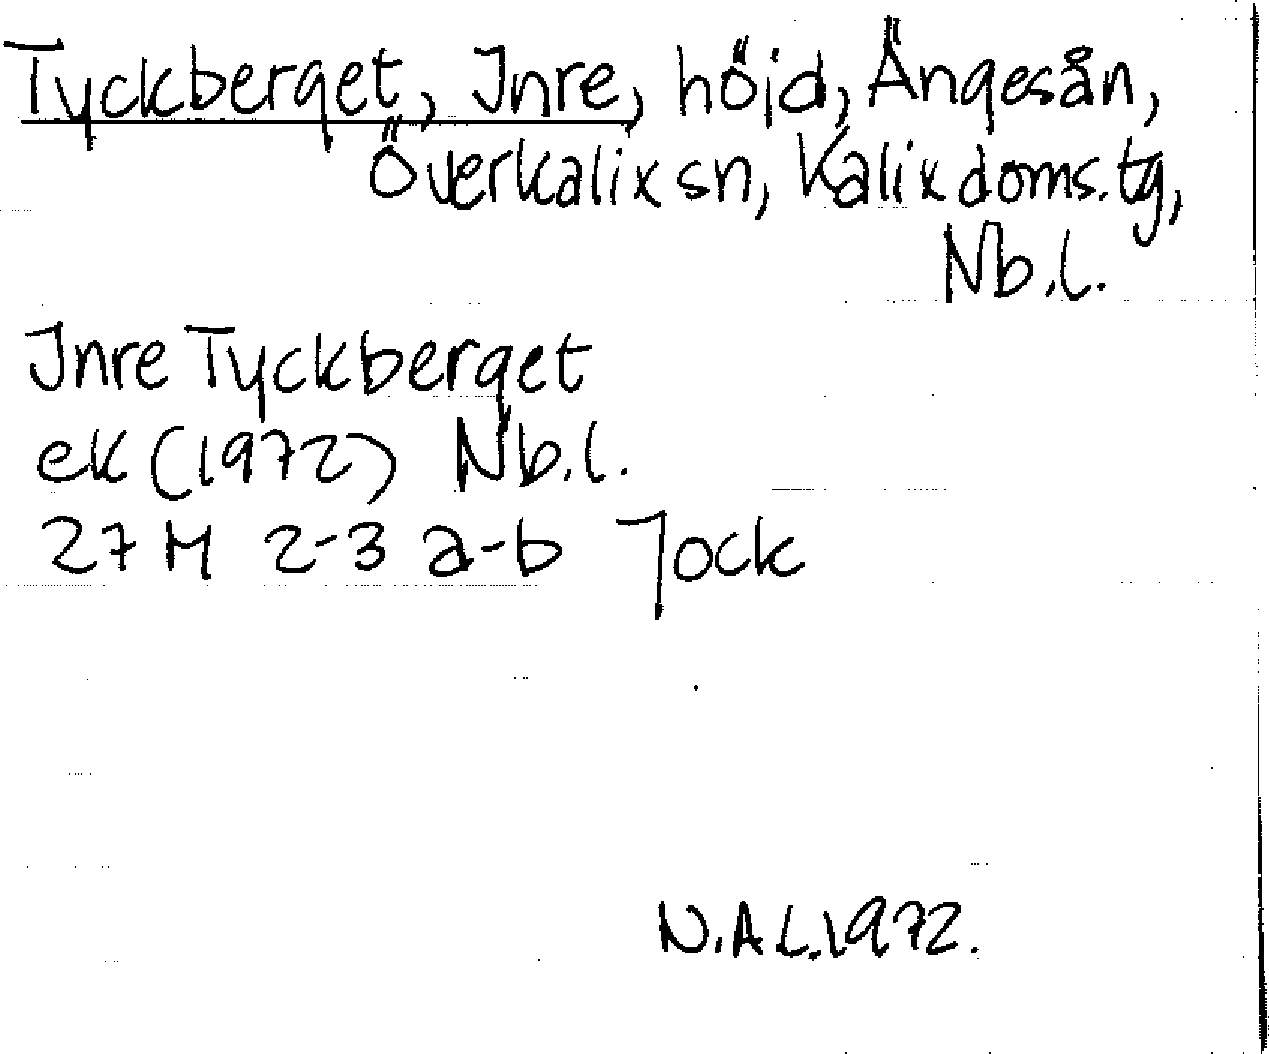 Tyckberget, Inre, höjd, Ängesån,
Överkalix sn, Kalix doms.tg,
Nb.l.
Inre Tyckberget
ek (1972) Nb.l.
27 M 2-3 a-b Jock
N.A L. 1972.